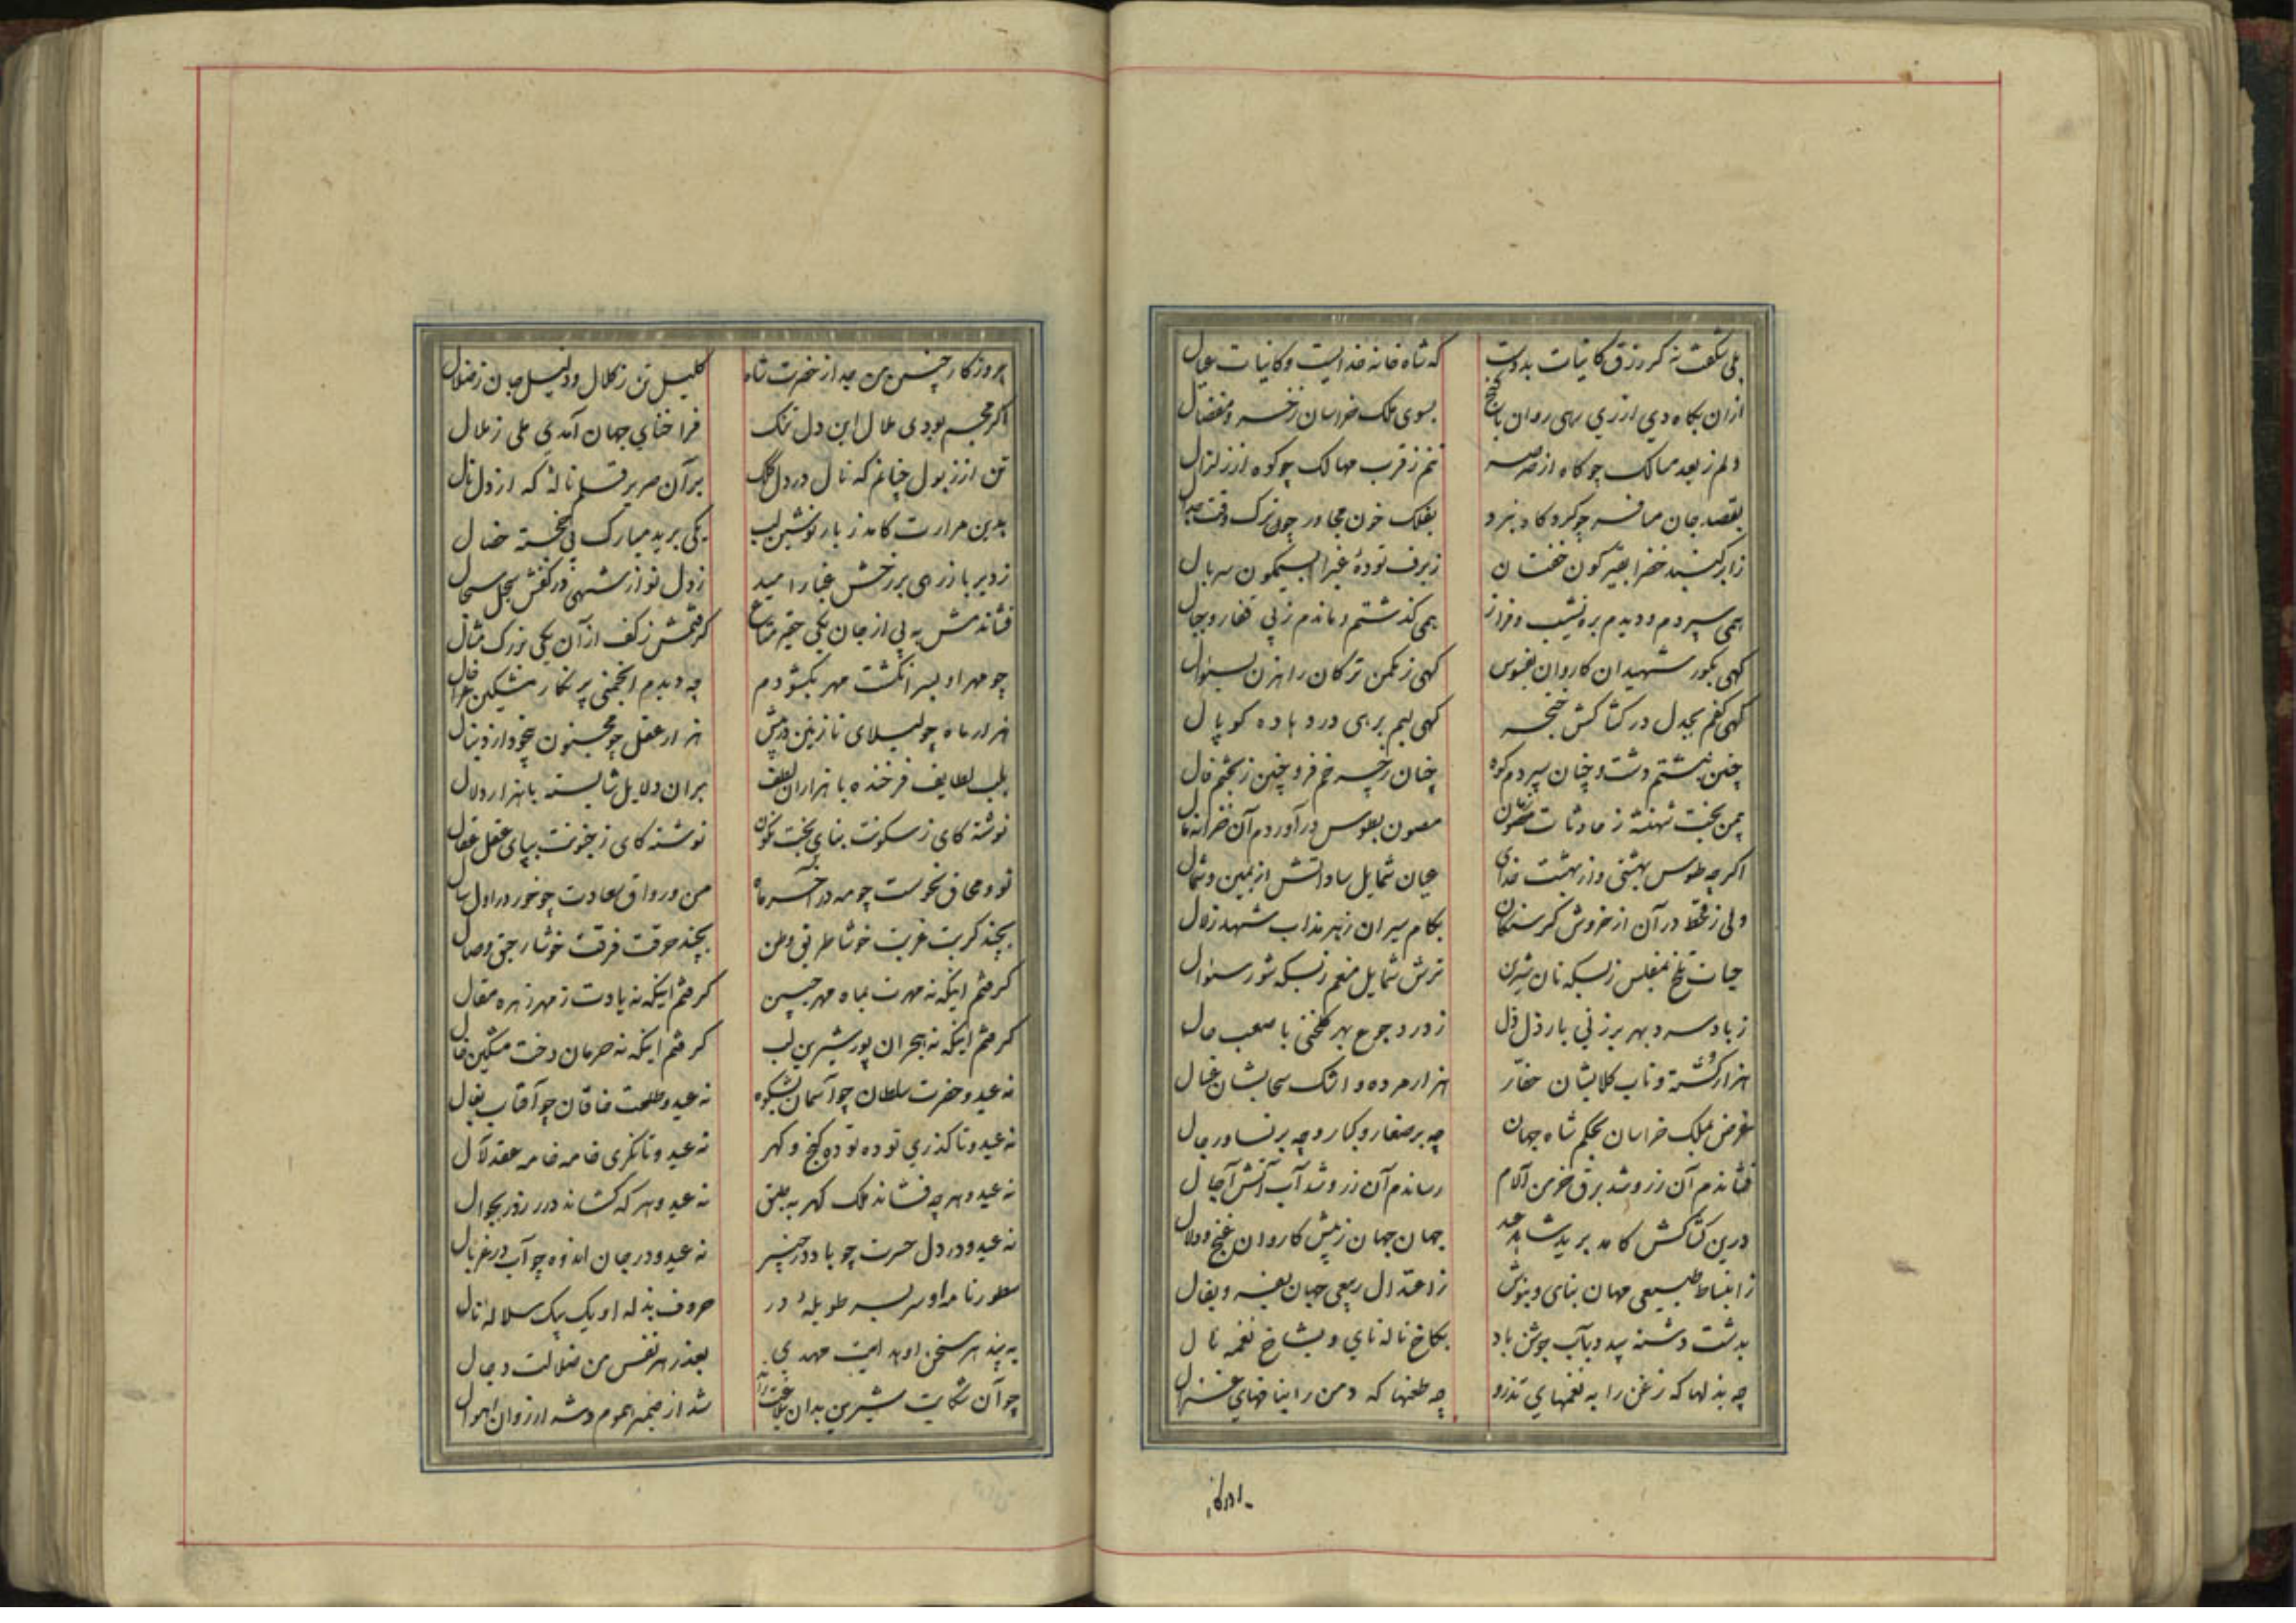 بلی شگفت نه گر رزق کاینات بدوست که شاه خانه خدایست و کاینات عیال
ازان بگاه دی از ری رهی روان با گنج بسوی ملک خراسان ز خسرو مفضال
دلم ز بعد مسالک چو کاه از صرصر تنم ز قرب مهالک چو کوه از زلزال
بقصد جان مسافر چو کرد گاه نبرد بفلک خون مجاور چو ترک وقت جدال
ز ابر گنبد خضرا بقیرگون خفتان ز برف توده غبرا بسیمگون سربال
همی سپردم و دیدم بره نشیب و فراز همی گذشتم و ماندم ز پی قفار و جبال
گهی بگور شهیدان کاروان بفسوس گهی ز مکمن ترکان راهزن بسئوال
گهی کفم بجدل در کشاکش خنجر گهی لبم برهی در
چنین نبشتم دشت و چنان سپردم کوه چنان ز چهرم خم فرو چنین ز بختم فال
بیمن بخت شهنشه ز حادثات مصون بطوس در آوردم آن خزانه مال
اگرچه طوس بهشتی و از بهشت خدای عیان شمایل ساداتش از یمین و شمال
ولی ز قحط در آن از خروش گرسنگان بکام سیران زهر مذاب شهد زلال
حیات تلخ بمفلس ز بسکه نان شیرین ترش شمایل منعم ز بسکه شور سئوال
ز باد سرد بهر برزنی بار ذل ذل ز درد جوع بهر گلخنی با صعب حال
هزار کشته و ناب کلابشان حفار هزار مرده و اشک سحابشان غسال
غرض بملک خراسان بحکم شاه جهان چه بر صغار و کبار و چه بر نسا و رجال
فشاندم آن زر و شد برق خرمن آلام رساندم آن زر و شد آب آتش آجال
درین کشاکش کامد برید شاهد عید جهان جهان ز پیش کاروان غنج و دلال
ز انبساط طبیعی جهان بنای و بنوش ز اعتدال ربیعی جهان
بدشت دشنه بید و بآب جوشن باد بکاخ ناله نای و بشاخ نغمه نال
چه بذلها که زغن را به نغمهای تذرو چه طعنها که دمن را بنافهای غزال
چو روزگار چنین من جدا ز حضرت شاه کلیل تن ز کلال و دلیل جان ز ضلال
اگر مجسم بودی ملال این دل تنگ فراخنای جهان آمدی ملی ز ملال
تن از زبول چنانم که نال در دل کلک بر آن صریر قلم ناله که از دل نال
بدین مرارت کامد ز یار نوشین لب یکی برید مبارک پی خجسته خصال
ز دیر باز رهی بر رخش غبار امید ز دل نواز شهی در کفش بجل سجال
فشاندمش به پی از جان یکی حقیر متاع گرفتمش ز کف از آن یکی بزرگ مثال
چو مهر او بسر انگشت مهر بگشودم چه دیدم انجمنی پر نگار مشکین خال
هزار ماه چو لیلای نازنین در پیش هزار عقل چو مجنون بیخود از دنبال
بلب لطایف فرخنده با هزاران لطف بران دلایل شایسته با هزار دلال
نوشته کای ز سکونت بنای بخت نگون نوشته کای ز جنونت بپای عقل عقال
تو و محاق نحوست چو مه در آخر ماه من و رواق سعادت چو خور در اول سال
بچند کربت غربت خوشا طریق وطن بچند حرقت فرقت خوشا رحیق وصال
گرفتم اینکه نه مهرت بماه مهر جبین گرفتم اینکه نه یادت ز مهر زهره مقال
گرفتم اینکه نه هجران پور شیرین لب گرفتم اینکه نه حرمان دخت مشکین خال
نه عید و حضرت سلطان چو آسمان بشکوه نه عید و طلعت خاقان چو آفتاب بفال
نه عید و تا گذری توده توده گنج و گهر نه عید و تا نگری خامه خامه عقد لآل
نه عید و هر چه فشاند ملک گهر به طبق نه عید و هر که کشاند درر زر بجوال
نه عید و در دل حسرت چو باد در چنبر نه عید و در جان انده چو آب در غربال
سطور نامه او سر بسر طویله در حروف بذله او یک بیک سلاله نال
به پند هر سخن او بد آیت مهدی بعذر هر نفس من ضلالت دجال
چو آن شکایت شیرین بدان شد از ضمیر هموم و شد از روان اهوال